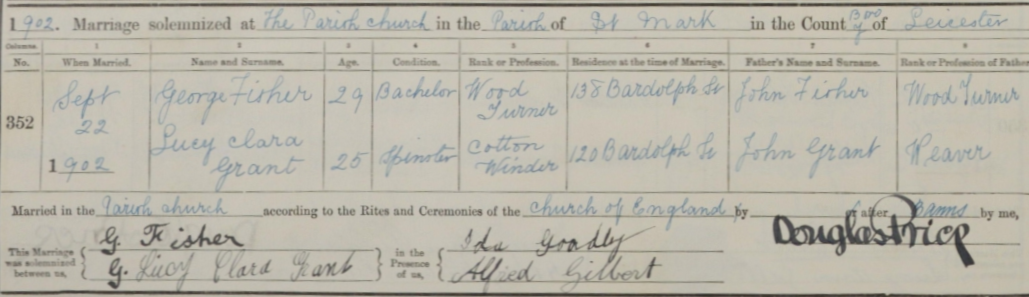 1902. Marriage solemnized at The Parish church in the Parish of St Mark in the County Boro of Leicester
Columns. 1 2 3 4 5 6 7 8
No. When Married. Name and Surname. Age. Condition. Rank or Profession. Residence at the time of Marriage. Father's Name and Surname. Rank or Profession of Father
352 Sept 22 1902 George Fisher 29 Bachelor Wood Turner 138 Bardolph St John Fisher Wood Turner
Lucy Clara Grant 25 Spinster Cotton Winder 120 Bardolph St John Grant Weaver
Married in the Parish church according to the Rites and Ceremonies of the church of England by after Banns by me,
This Marriage was solemnized between us, G. Fisher
G. Lucy Clara Grant
in the Presence of us, Ida Goadby
Alfred Gilbert
Douglas Price